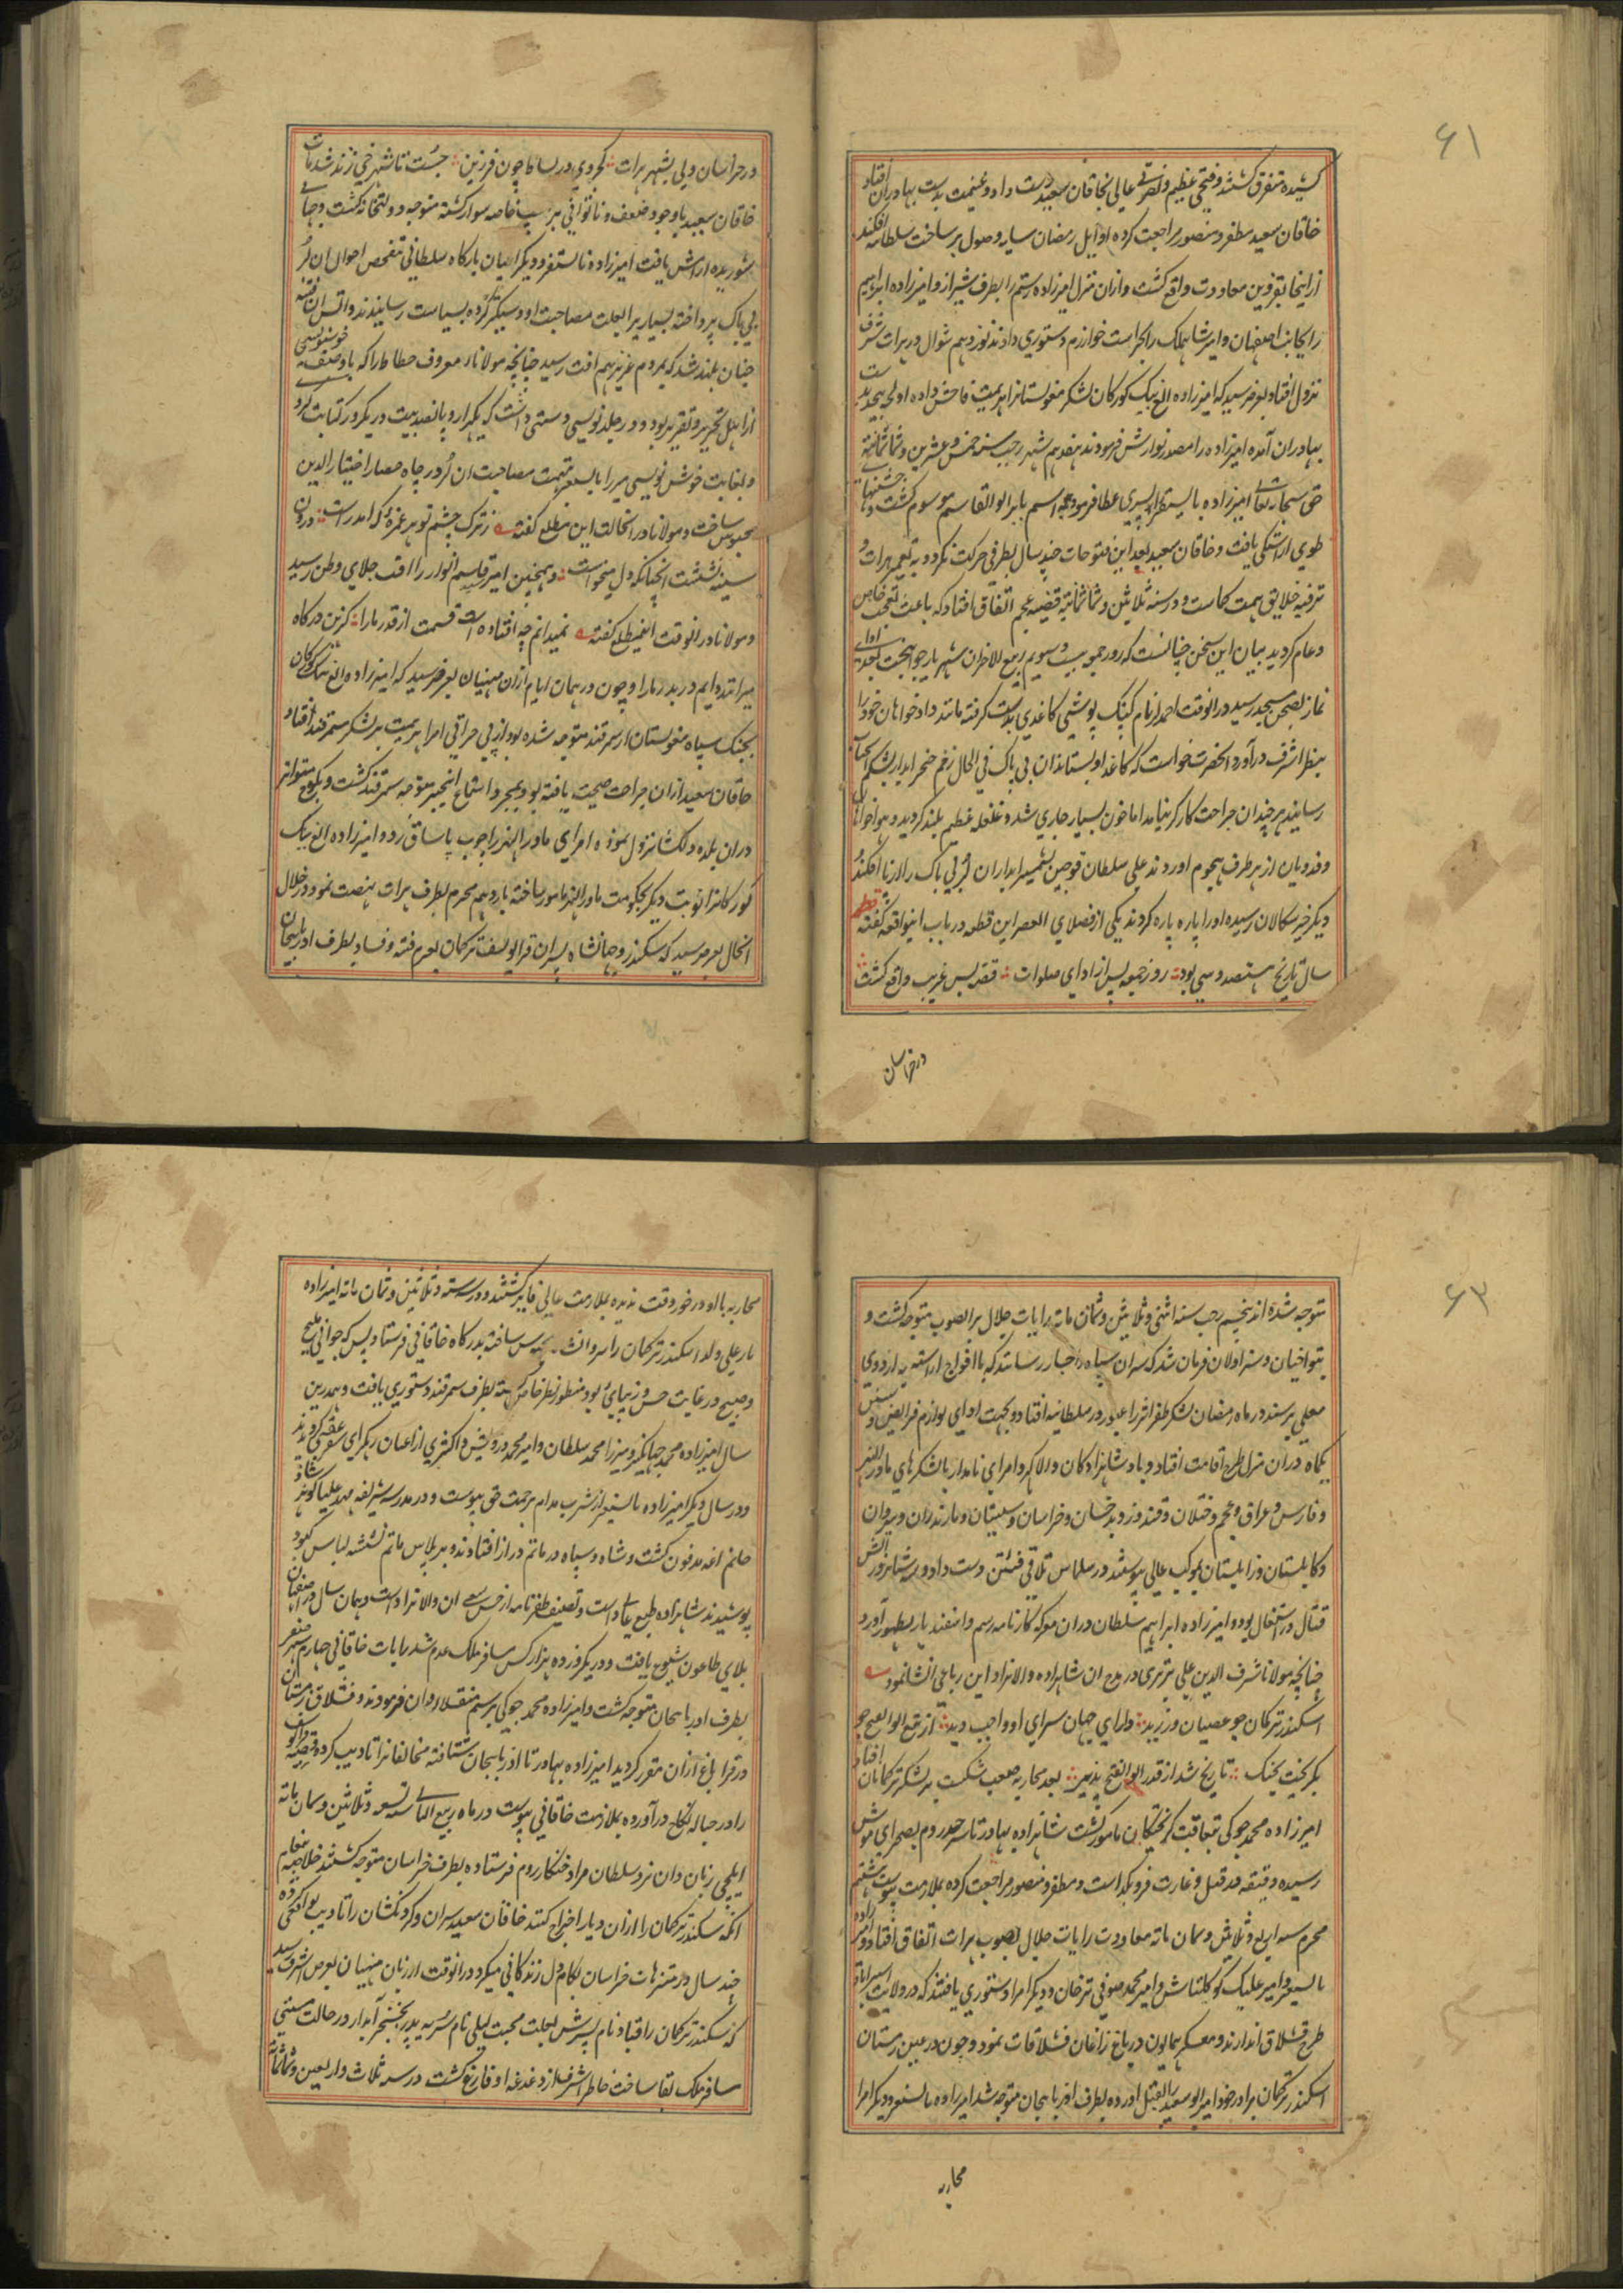 ۶۱
کشیده متفرق کشتند و فتحی عظیم و نصرتی عالی بخاقان سعید دست داد و غنیمت بدست بهادران افتاد
خاقان سعید مظفر و منصور مراجعت کرده اوایل رمضان سایه وصول بر ساحت سلطانیه افکند
از اینجا بقزوین معاودت واقع کشت و ازان منزل امیرزاده رستم را بطرف شیراز و امیرزاده ابراهیم
را بجانب اصفهان و امیر شاهملک را بحراست خوارزم دستوری دادند نوزدهم شوال در هرات شرف
نزول افتاد بعرض رسید که امیرزاده الغ بیک کورکان لشکر مغولستانرا هزیمت فاحش داده اولجه بیحد بدست
بهادران آمده امیرزاده را مصدر نوازش فرمودند هفدهم شهر رجب سنه خمس و عشرین و ثمانمائه
حق سبحانه تعالی امیرزاده بایسنغر را پسری عطا فرمود باسم بابر ابوالقاسم موسوم کشت و جشنها
طوی اراستکی یافت و خاقان سعید بعد این فتوحات چند سال بطرفی حرکت نکرد و به تعمیر هرات و
ترفیه خلایق همت کماشت و در سنه ثلاثین و ثمانمائه قضیه عجیم اتفاق افتاد که باعث تعجب خاص
و عام کردید بیان این سخن چنانست که روز جمعه بیست و سیوم ربیع الاخران شهریار جوانبخت بعد ادای
نماز بصحن مسجد رسید در انوقت احمد لر نام کپنک پوشی کاغدی بدست کرفته مانند داد خواهان خود را
بنظر اشرف در آورد انحضرت خواست که کاغد او بستاند ان بی باک فی الحال زخم خنجر ابدار بشکم انجناب
رسانید هرچند ان جراحت کارکر نیامد اما خون بسیار جاری شد و غلغله عظیم بلند کردید و هواخواهان
و فدویان از هر طرف هجوم اوردند علی سلطان قوچین بشمشیر ابدار ان لر بی باک را از پا افکند و
دیکر خیر سکالان رسیده او را پاره پاره کردند یکی از فضلای العصر این قطعه در باب اینواقعه کفته قطعه
سال تاریخ هشتصد و سی بود روز جمعه پس از ادای صلوات قصه بس غریب واقع کشت
در خراسان
در خراسان ولی بشهر هرات کجروی در بساط چون فرزین جست تا شهرخی زند شد مات
خاقان سعید با وجود ضعف و ناتوانی بر اسپ خاصه سوار کشته متوجه دولتخانه کشت و جهانی
شوریده ارامش یافت امیرزاده بایسنغر و دیکر اعیان بارکاه سلطانی تفحص احوال ان لر
بی باک پرداخته بسیار یرا بعلت مصاحبت او دستکیر کرده بسیاست رسانیدند و اتش ان فتنه
چنان بلند شد که بمردم عزیز هم افت رسید چنانچه مولانا معروف خطاط را که باوصف خوشنویسی
از اهل تحریر و تقریر بود و در جلد نویسی دستی داشت که یکهزار و پانصد بیت در یکروز کتابت کردی
و بغایت خوش نویسی میرزا بایسنغر بتهمت مصاحبت ان لر در چاه حصار اختیار الدین
محبوس ساخت و مولانا در انحالت این مطلع کفته ز ترک چشم تو هر غمزه که امد راست درون
سینه نشست انچنانکه دل میخواست و همچنین امیر قاسم انوار را افت جلای وطن رسید
و مولانا در انوقت اینمطلع کفته نمیدانم چه افتاده است قسمت از قدر ما را کزین درکاه
میراند دوایم در بدر ما را و چون در همان ایام از ان منهیان بعرض رسید که امیرزاده الغ بیک کورکان
بجنک سپاه مغولستان از سمرقند متوجه شده بود از بی حراقی امرا هزیمت بر لشکر سمرقند افتاد
خاقان سعید ازان جراحت صحت یافته بود بمجرد استماع اینخبر متوجه سمرقند کشت و بکوچ متواتر
دران بلده دلکشا نزول نموده امرای ماوراالنهر را چوب یاساق زد و امیرزاده الغ بیک
کورکانرا نوبت دیکر بحکومت ماوراالنهر مامور ساخته یازدهم محرم بطرف هرات نهضت نمود و خلال
انحال بعرض رسید که سکندر و جهانشاه پسران قرا یوسف ترکمان بعزم فتنه و فساد بطرف ادربایجان
۶۳
متوجه شده اند پنجم رجب سنه اثنی و ثلاثین و ثمان مائه رایات جلال بر الصوب متوجه کشت و
بتواجیان و سزاولان فرمان شد که سران سپاه را خبار رسانند که با افواج اراسته به اردوی
معلی برسند در ماه رمضان لشکر ظفر اثر را عبور در سلطانیه افتاد و بجهت ادای لوازم فرایض و سنن
یکماه دران منزل طرح اقامت افتاد و باد شاهزادکان والا کهر و امرای نامدار با لشکرهای ماوراالنهر
و فارس و عراق و عجم و ختلان و قندوز و بدخشان و خراسان و سیستان و مازندران و سروان
و کابلستان و زابلستان بموکب عالی پیوستند در سلماس تلاقی فئتین دست داد و سه شبانروز اتش
قتال در اشتغال بود و امیرزاده ابراهیم سلطان دران معرکه کارنامه رستم و اسفندیار بظهور آورد
چنانچه مولانا شرف الدین علی یزدی در مدح ان شاهزاده والا نزاد این رباعی انشا نمود
اسکندر ترکمان چو عصیان ورزید دارای جهان سرای او واجب دید از تیغ ابوالفتح چو
بکریخت بجنک تاریخ شد از قدر ابوالفتح پدید بعد محاربه صعب شکست بر لشکر ترکمانان افتاد
امیرزاده محمد جوکی بتعاقب کریختکان مامور کشت شاهزاده بهادر تا سرحد روم بصحرای موش
رسیده دقیقه در قتل و غارت فرو نکذاشت و مظفر و منصور مراجعت کرده بملازمت پیوست ششم
محرم سنه اربع و ثلاثین و ثمان مائه معاودت رایات جلال بصوب هرات اتفاق افتاد و امیرزاده
بایسنغر و امیر علیک کوکلتاش و امیر محمد صوفی ترخان و دیکر امرا دستوری یافتند که در ولایت استراباد
طرح قشلاق اندازند و معسکر همایون در باغ زاغان قشلاقات نمود و چون در عین زمستان
اسکندر ترکمان برادر خود امیر ابو سعید را بقتل اورده بطرف ادربایجان متوجه شد امیرزاده بایسنغر و دیکر امرا
محاربه
محاربه با او در خور وقت ندیده بملازمت عالی فایز کشتند و در سنه ستّ و ثلاثین و ثمان مائه امیرزاده
یار علی ولد اسکندر ترکمان را سروانشاه محبوس ساخته بدرکاه خاقانی فرستاد پس که جوانی ملیح
و صبیح در غایت حسن و زیبای بود منظور نظر خاص کشته بطرف سمرقند دستوری یافت و همدرین
سال امیرزاده محمد جهانکیر و میرزا محمد سلطان و امیر محمد درویش و اکثری از اعیان رهکرای سفر عقبی کردیدند
و در سال دیکر امیرزاده بایسنغر از شرب مدام برحمت حق پیوست و در مدرسه شریفه مهد علیا کوهر شاد
خانم اغه مدفون کشت و شاه و سپاه در ماتم دراز افتادند و بر پلاس ماتم نشسته لباس کبود
پوشیدند شاهزاده طبع عالی داشت و تصنیف ظفرنامه از حسن سعی ان والا نزاد است و همان سال در اصفهان
بلای طاعون شیوع یافت و در یکروز ده هزار کس مسافر ملک عدم شد رایات خاقانی چهارم شهر صفر
بطرف ادربایجان متوجه کشت و امیرزاده محمد جوکی برسم منقلا روان فرمودند و قشلاق زمستان
در قرا باغ اران مقرر کردید امیرزاده بهادر تا ادربایجان شتافته مخالفانرا تادیب کرده
را در حباله نکاح درآورده بملازمت خاقانی پیوست در ماه ربیع الثانی سنه تسعه و ثلاثین و ثمان مائه
ایلچی زبان دان نزد سلطان مراد خنکار روم فرستاده بطرف خراسان متوجه کشتند خلاصه پیغام
انکه سکندر ترکمان را ازان دیار اخراج کنند خاقان سعید سران و کردنکشان را تادیب بواقعی کرده
چند سال در متنزهات خراسان بکام دل زندکانی میکرد در انوقت از زبان منهیان بعرض اشرف رسید
که سکندر ترکمان را قباد نام پسرش بعلت محبت لیلی نام سریه پدر بخنجر آبدار در حالت مستی
مسافر ملک بقا ساخت خاطر اشرف از دغدغه او فارغ کشت در سنه ثلاث و اربعین و ثمانمائه